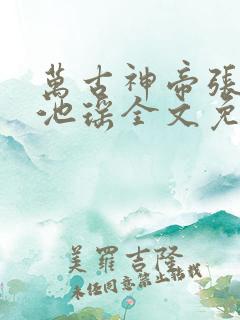 萬古神帝張
池瑤全文免
美羅吉隆
未任同意禁止轉載